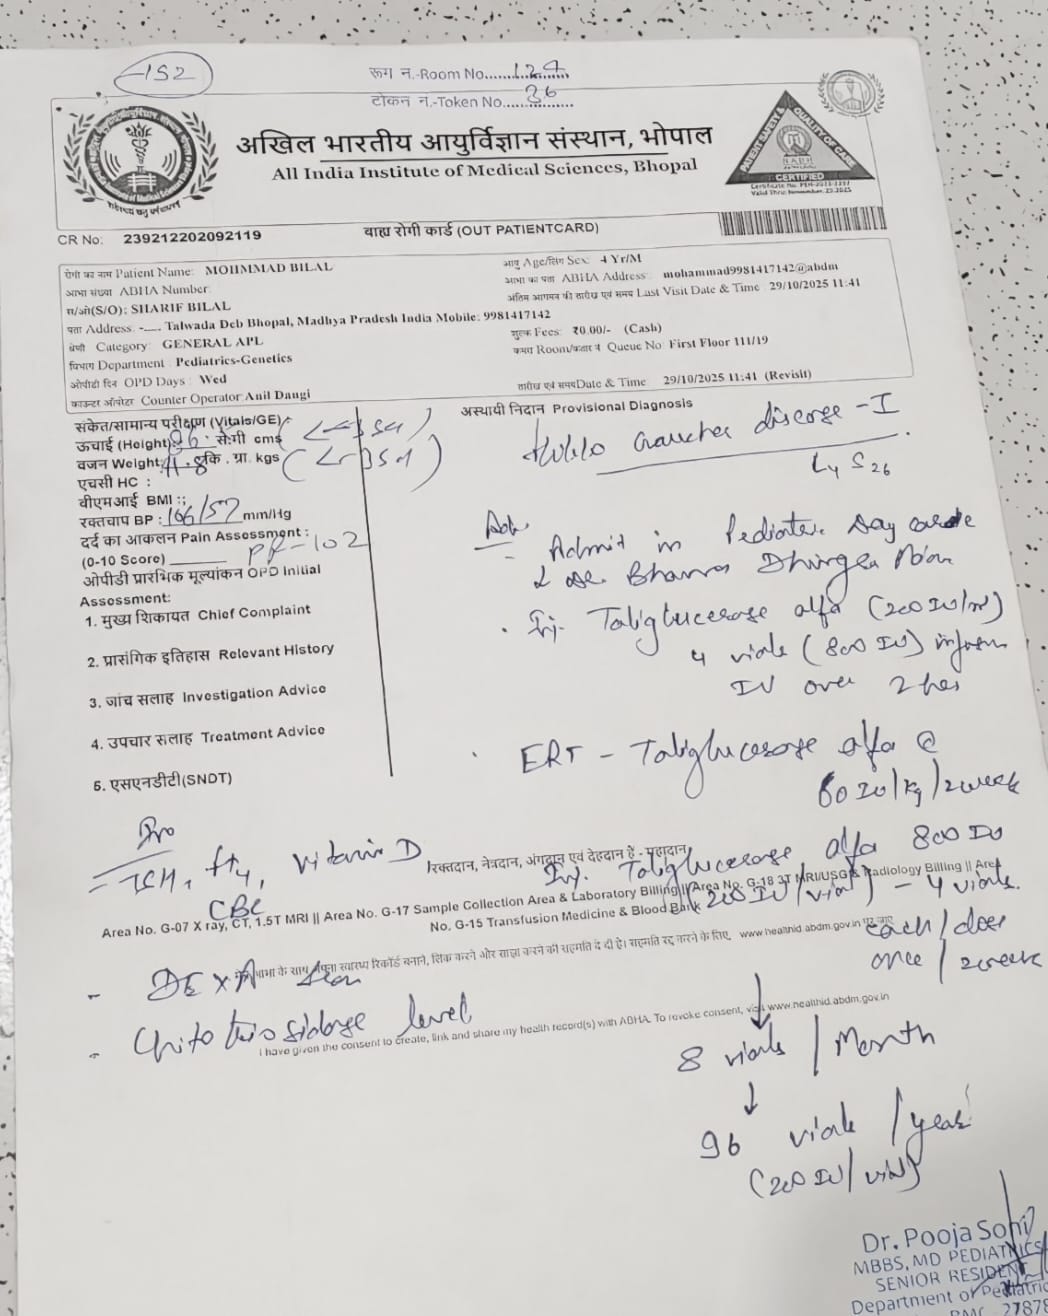 -152
रूम न.-Room No. 124
टोकन नं.-Token No. 36
अखिल भारतीय आयुर्विज्ञान संस्थान, भोपाल
All India Institute of Medical Sciences, Bhopal
PATIENT SAFETY & QUALITY OF CARE
NABH
CERTIFIED
CR No: 239212202092119
बाह्य रोगी कार्ड (OUT PATIENTCARD)
रोगी का नाम Patient Name: MOHMMAD BILAL
आयु Age/लिंग Sex: 4 Yr/M
आभा संख्या ABHA Number
आभा का पता ABHA Address: mohammad9981417142@abdm
स/ओ(S/O): SHARIF BILAL
अंतिम आगमन की तारीख एवं समय Last Visit Date & Time: 29/10/2025 11:41
पता Address: -...... Talwada Deb Bhopal, Madhya Pradesh India Mobile: 9981417142
शुल्क Fees: ₹0.00/- (Cash)
श्रेणी Category: GENERAL APL
कमरा Room/कतार नं Queue No: First Floor 111/19
विभाग Department: Pediatrics-Genetics
ओपीडी दिन OPD Days: Wed
तारीख एवं समय Date & Time: 29/10/2025 11:41 (Revisit)
काउन्टर ऑपरेटर Counter Operator: Anil Dangi
संकेत/सामान्य परीक्षण (Vitals/GE)
अस्थायी निदान Provisional Diagnosis
ऊंचाई (Height) सेंमी cms
वजन Weight 11.8 कि. ग्रा. kgs
एचसी HC :
बीएमआई BMI :;
रक्तचाप BP : 106/57 mm/Hg
दर्द का आकलन Pain Assessment :
(0-10 Score) PR-102
ओपीडी प्रारंभिक मूल्यांकन OPD Initial
Assessment:
1. मुख्य शिकायत Chief Complaint
2. प्रासंगिक इतिहास Relevant History
3. जांच सलाह Investigation Advice
4. उपचार सलाह Treatment Advice
5. एसएनडीटी(SNDT)
Gaucher disease -I
Adv
Admit in Pediatric Day care
Bhavna Dhingra
Inj. Taliglucerase alfa (200 IU/vl)
4 vials (800 IU) infusion
IV over 2 hrs
ERT - Taliglucerase alfa @
60 IU/kg/2week
Inv
TSH, fT4, vitamin D
CBC
रक्तदान, नेत्रदान, अंगदान एवं देहदान हैं - महादान
Inj. Taliglucerase alfa 800 IU
(200 IU/vial) - 4 vials
each/dose
once/2week
Area No. G-07 X ray, CT, 1.5T MRI || Area No. G-17 Sample Collection Area & Laboratory Billing || Area No. G-18 3T MRI/USG & Radiology Billing || Area
No. G-15 Transfusion Medicine & Blood Bank
- DEXA Scan
- Chitotriosidase level
I have given the consent to create, link and share my health record(s) with ABHA. To revoke consent, visit www.healthid.abdm.gov.in
8 vials / Month
96 vials / year
(200 IU/vial)
Dr. Pooja Soni
MBBS, MD PEDIATRICS
SENIOR RESIDENT
Department of Pediatric